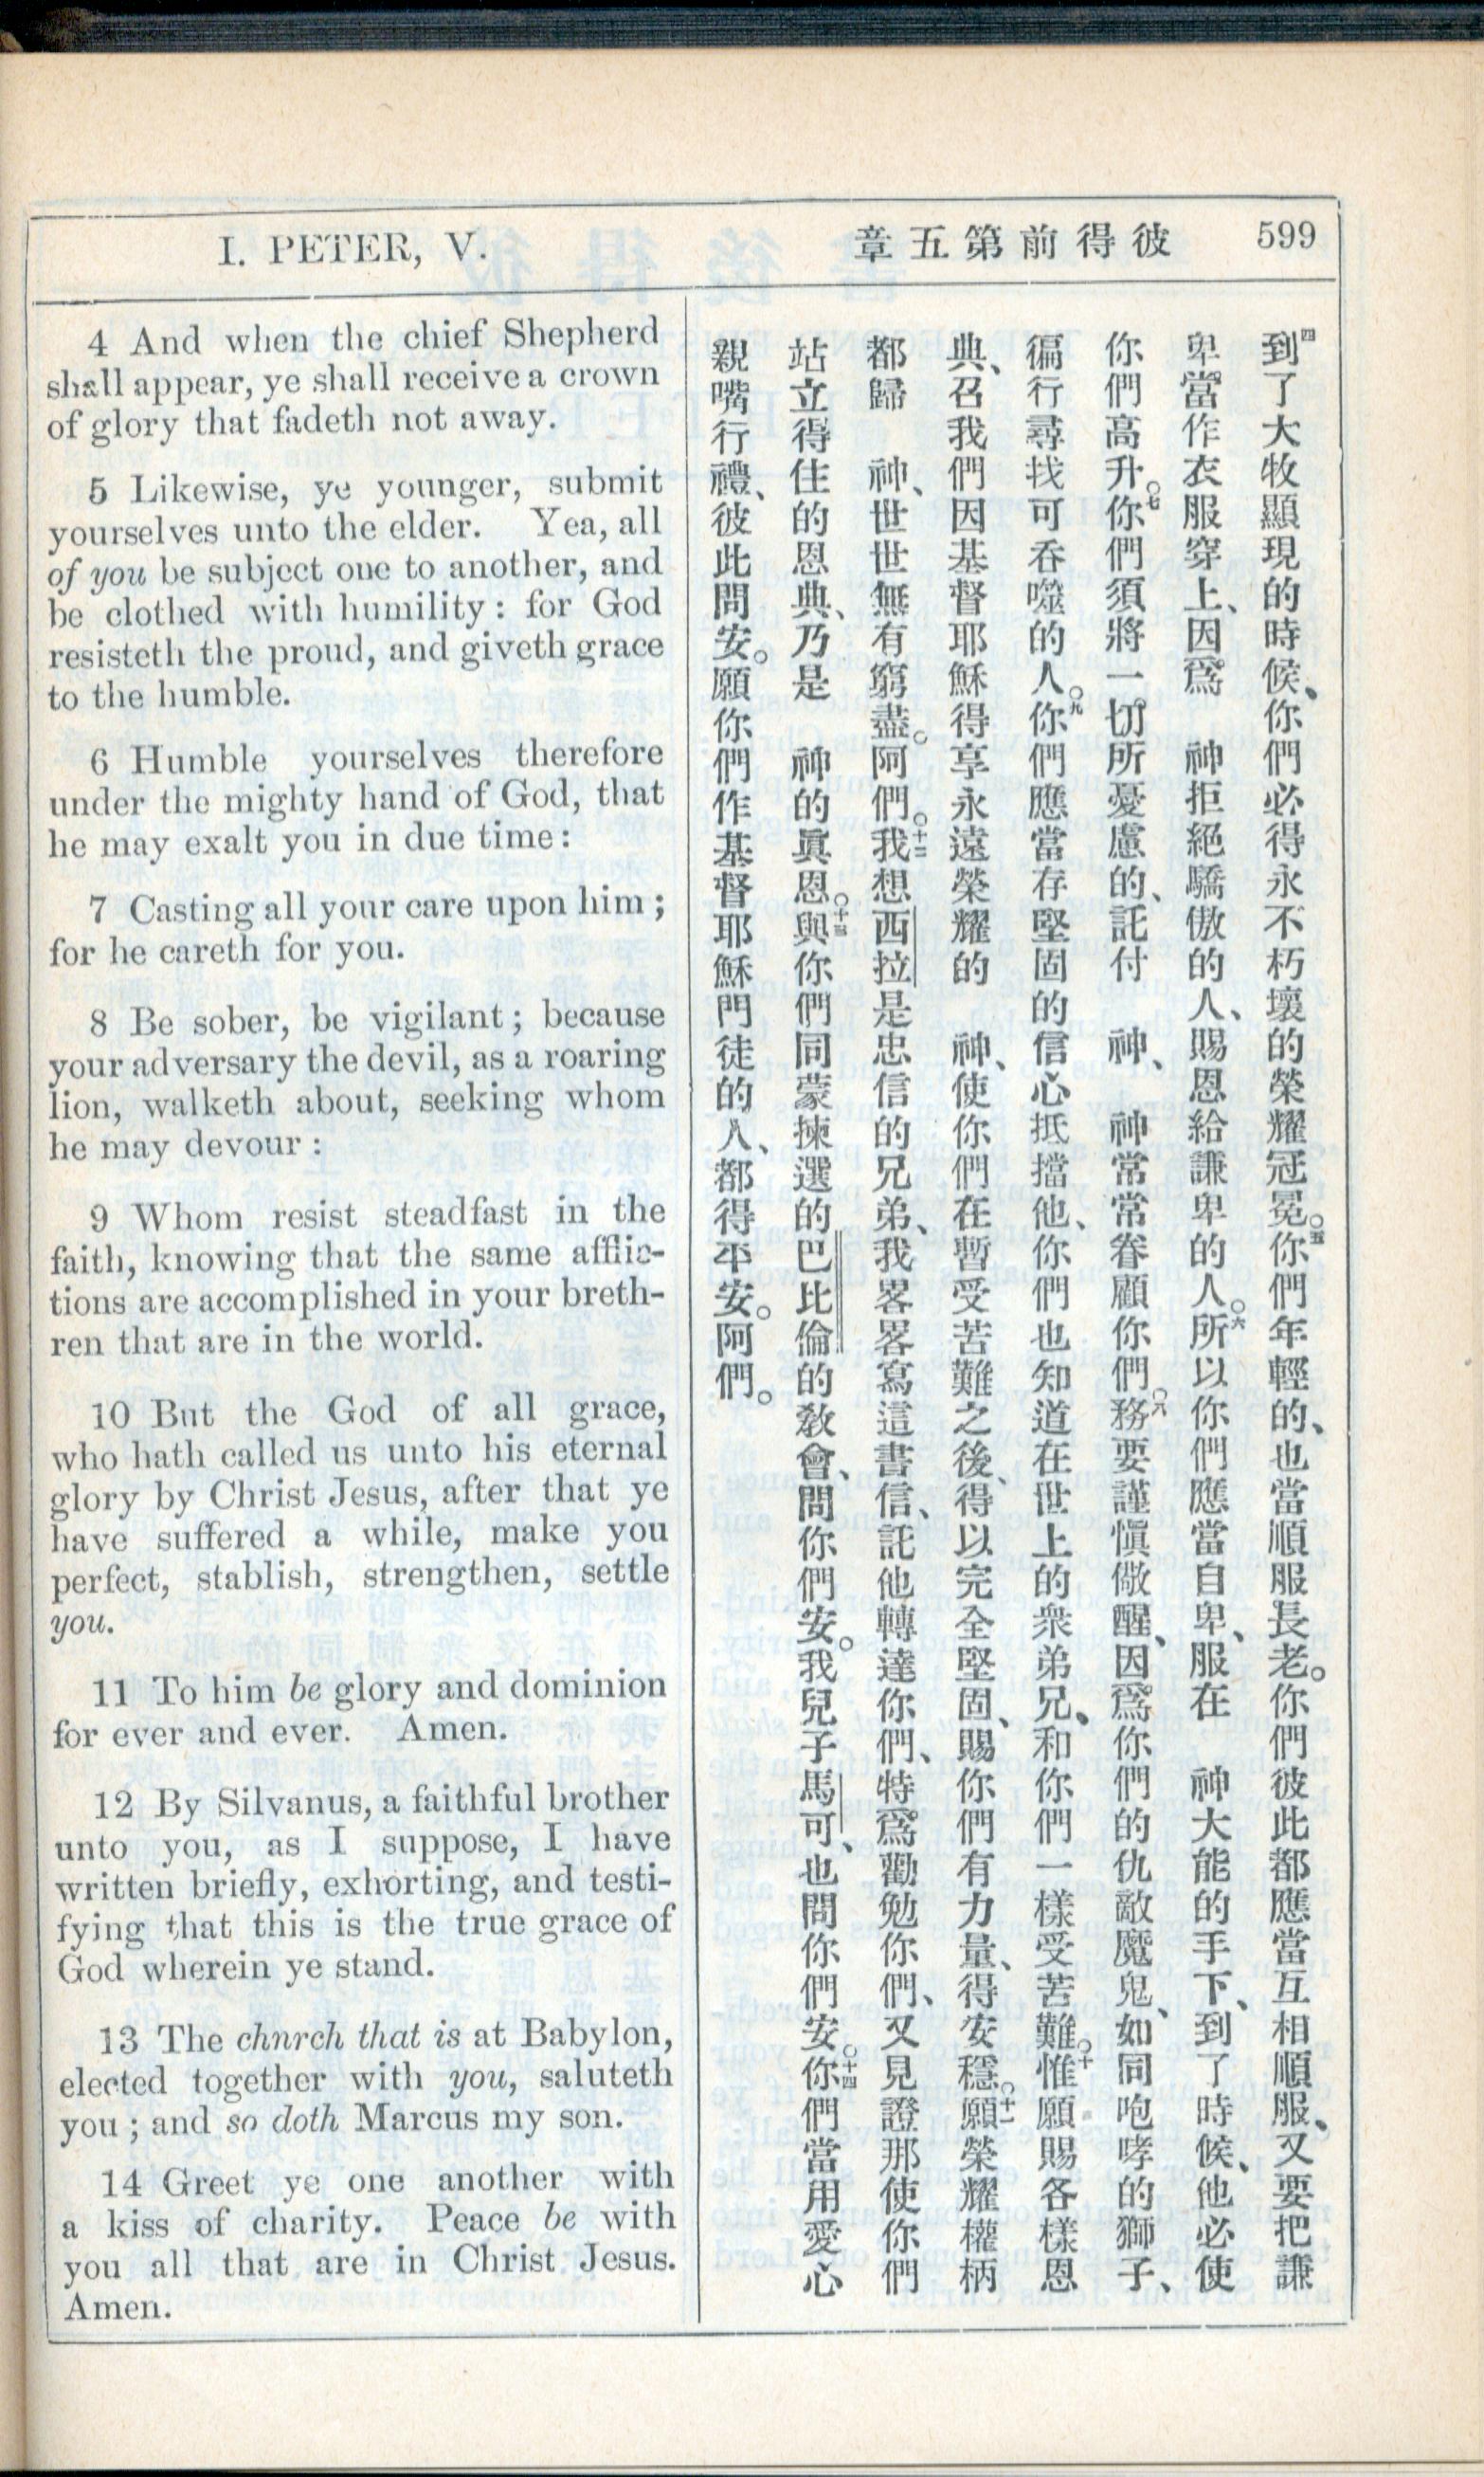 I. PETER, V.
章五第前得彼
599
4 And when the chief Shepherd
shall appear, ye shall receive a crown
of glory that fadeth not away.
5 Likewise, ye younger, submit
yourselves unto the elder. Yea, all
of you be subject one to another, and
be clothed with humility: for God
resisteth the proud, and giveth grace
to the humble.
6 Humble yourselves therefore
under the mighty hand of God, that
he may exalt you in due time:
7 Casting all your care upon him;
for he careth for you.
8 Be sober, be vigilant; because
your adversary the devil, as a roaring
lion, walketh about, seeking whom
he may devour:
9 Whom resist steadfast in the
faith, knowing that the same afflic-
tions are accomplished in your breth-
ren that are in the world.
10 But the God of all grace,
who hath called us unto his eternal
glory by Christ Jesus, after that ye
have suffered a while, make you
perfect, stablish, strengthen, settle
you.
11 To him be glory and dominion
for ever and ever. Amen.
12 By Silvanus, a faithful brother
unto you, as I suppose, I have
written briefly, exhorting, and testi-
fying that this is the true grace of
God wherein ye stand.
13 The chnrch that is at Babylon,
elected together with you, saluteth
you; and so doth Marcus my son.
14 Greet ye one another with
a kiss of charity. Peace be with
you all that are in Christ Jesus.
Amen.
四到了大牧顯現的時候、你們必得永不朽壞的榮耀冠冕。五你們年輕的、也當順服長老。你們彼此都應當互相順服、又要把謙
卑當作衣服穿上、因爲 神拒絕驕傲的人、賜恩給謙卑的人。六所以你們應當自卑、服在 神大能的手下、到了時候、他必使
你們高升。七你們須將一切所憂慮的、託付 神、 神常常眷顧你們。八務要謹愼儆醒、因爲你們的仇敵魔鬼、如同咆哮的獅子、
徧行尋找可吞噬的人。九你們應當存堅固的信心抵擋他、你們也知道在世上的衆弟兄、和你們一樣受苦難。十惟願賜各樣恩
典、召我們因基督耶穌得享永遠榮耀的 神、使你們在暫受苦難之後、得以完全堅固、賜你們有力量、得安穩。十一願榮耀權柄
都歸 神、世世無有窮盡。阿們。十二我想西拉是忠信的兄弟、我畧畧寫這書信、託他轉達你們、特爲勸勉你們、又見證那使你們
站立得住的恩典、乃是 神的眞恩。十三與你們同蒙揀選的巴比倫的敎會、問你們安。我兒子馬可、也問你們安。十四你們當用愛心
親嘴行禮、彼此問安。願你們作基督耶穌門徒的人、都得平安。阿們。